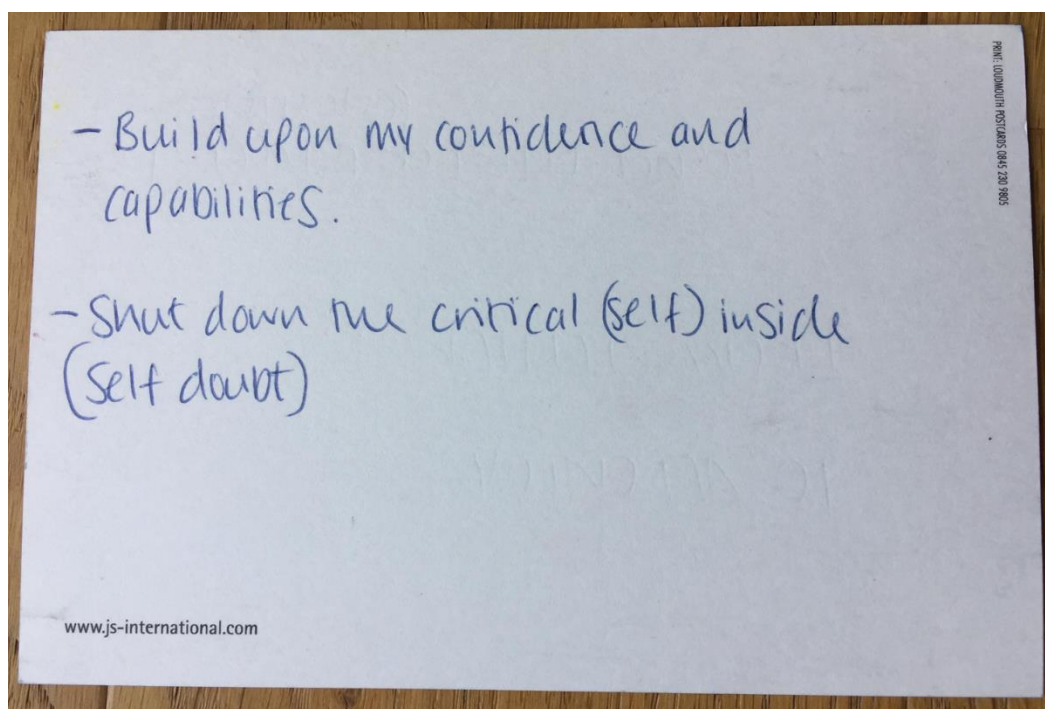 PRINT: LOUDMOUTH POSTCARDS 0845 230 9805
- Build upon my confidence and
capabilities.
- Shut down the critical (self) inside
(Self doubt)
www.js-international.com